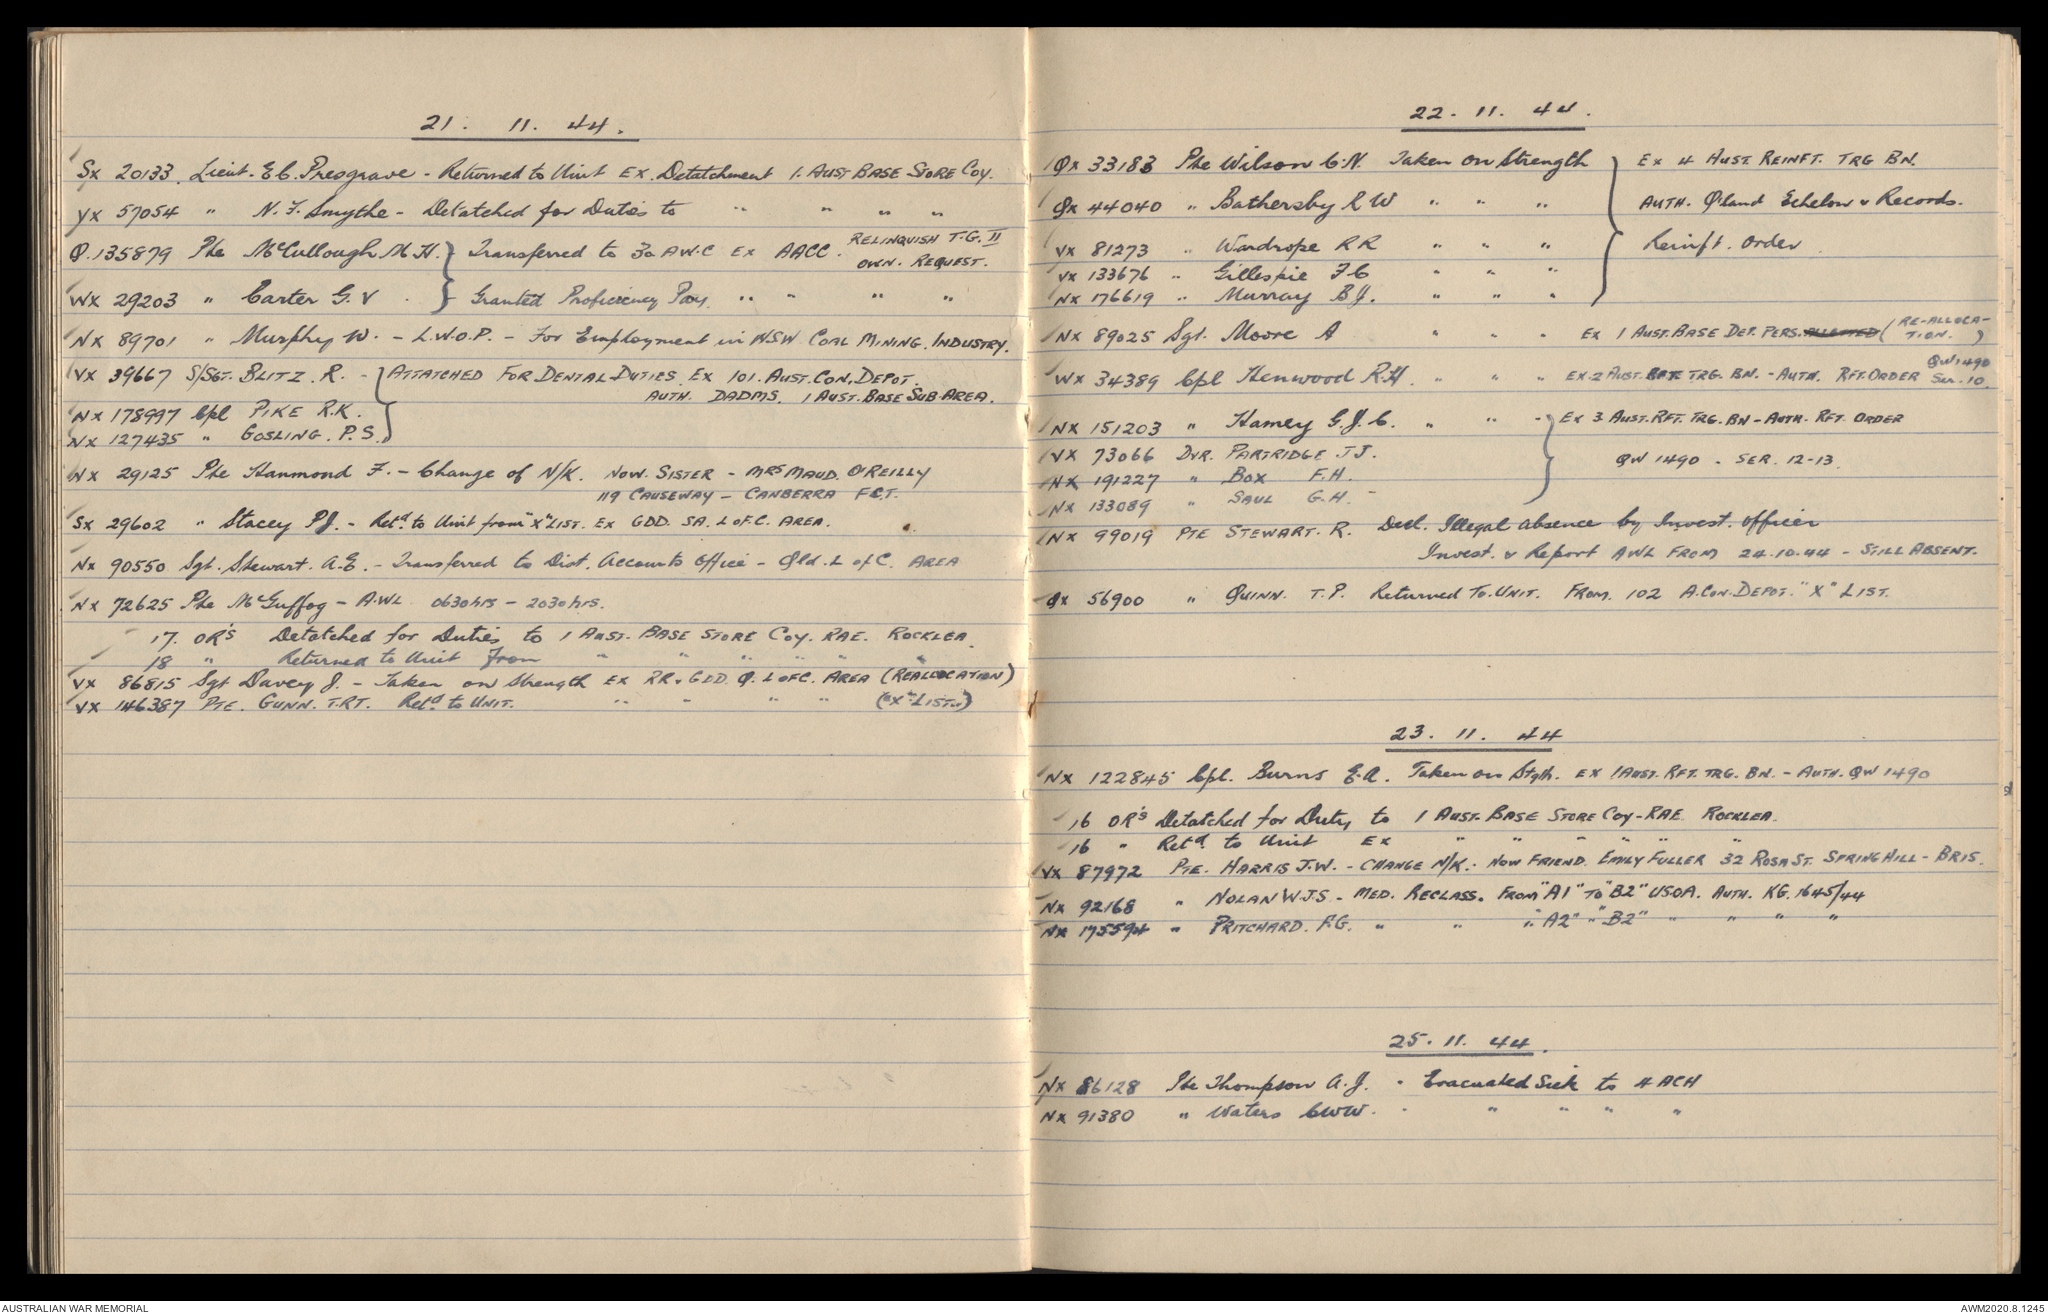 21. 11. 44.
SX 20133. Lieut. E C. Presgrave - Returned to Unit EX. Detatchment 1. AUST BASE STORE COY.
VX 57054 " N. F. Smythe - Detatched for Duties to " " " "
Q. 135879 Pte McCullough M. H. } Transferred to 30 A.W.C EX AACC. RELINQUISH T.G. II
OWN. REQUEST.
WX 29203 " Carter G. V . } Granted Proficiency Pay. " " " "
NX 89701 " Murphy W. - L.W.O.P. - For Employment in N.S.W. COAL MINING. INDUSTRY.
VX 39667 S/SGT. BLITZ. R. - } ATTATCHED FOR DENTAL DUTIES EX 101. AUST. CON. DEPOT.
AUTH. DADMS. 1 AUST. BASE SUB AREA.
NX 178997 Cpl PIKE R.K.
NX 127435 " GOSLING. P.S.
NX 29125 Pte Hanmond F. - Change of N/K. NOW. SISTER - MRS MAUD. O'REILLY
119 CAUSEWAY - CANBERRA F.C.T.
SX 29602 " Stacey P.J. - Retd to Unit from "X" LIST. EX GDD. SA. L OF C. AREA.
NX 90550 Sgt. Stewart. A.E. - Transferred to Dist. Accounts Office - Qld. L of C. AREA
NX 72625 Pte McGuffog - A.W.L 0630 hrs - 2030 hrs.
17. OR'S Detatched for Duties to 1 AUST. BASE STORE COY. RAE. ROCKLEA.
18 " Returned to Unit From " " " " " "
VX 86815 Sgt Davey J. - Taken on Strength EX RR & GDD. Q. L OF C. AREA (REALLOCATION)
VX 146387 PTE. GUNN. T.R.T. Retd. to UNIT. " " " " ("X" LIST.)
22. 11. 44.
QX 33183 Pte Wilson C. N. Taken on Strength } EX 4 AUST. REINFT. TRG BN.
QX 44040 " Bathersby R W " " " AUTH. Q'land Echelon & Records.
VX 81273 " Wardrope R R " " " Reinft. Order
VX 133676 " Gillespie F C " " "
NX 176619 " Murray B J. " " "
NX 89025 Sgt. Moore A " " " EX 1 AUST. BASE DET. PERS. ALLOTTED (RE-ALLOCA-
TION. )
WX 34389 Cpl Henwood R. H. " " " EX. 2 AUST. RFT TRG. BN. - AUTH. RFT. ORDER QW 1490
Ser. 10.
NX 151203 " Hamey G. J. C. " " " } EX 3 AUST. RFT. TRG. BN - AUTH. RFT. ORDER
VX 73066 DVR. PARTRIDGE. J J. QW 1490 - SER. 12-13.
NX 191227 " BOX F.H.
NX 133089 " SAUL G.H. -
NX 99019 PTE STEWART. R. Decl. Illegal absence by Invest. officer
Invest. & Report AWL FROM 24.10.44 - STILL ABSENT.
QX 56900 " QUINN. T.P. Returned To. UNIT. FROM. 102 A. CON. DEPOT. "X" LIST.
23. 11. 44
NX 122845 Cpl. Burns E. A. Taken on Stgth. EX 1 AUST. RFT. TRG. BN. - AUTH. QW 1490
16 OR'S Detatched for Duty to 1 AUST. BASE STORE COY - RAE. ROCKLEA.
16 " Retd. to Unit EX " " " " " "
VX 87972 PTE. HARRIS J.W. - CHANGE N/K. - NOW FRIEND. EMILY FULLER 32 ROSA ST. SPRING HILL - BRIS.
NX 92168 " NOLAN W.J.S. - MED. RECLASS. FROM "A1" TO "B2" USOA. AUTH. KG. 1645/44
NX 175594 " PRITCHARD. F.G. " " " "A2" " "B2" " " " "
25. 11. 44.
NX 86128 Pte Thompson A. J. - Evacuated Sick to 4 ACH
NX 91380 " Waters C W W. - " " " "
AUSTRALIAN WAR MEMORIAL
AWM2020.8.1245